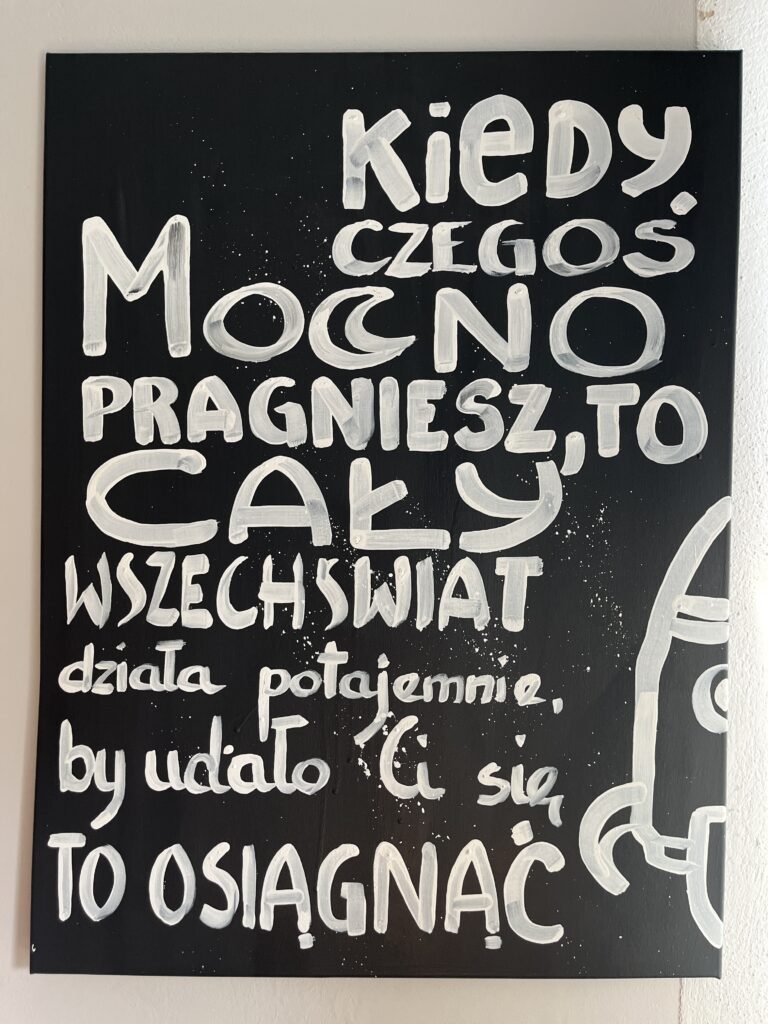 KiEDY
CZEGOŚ
MOCNO
PRAGNIESZ, TO
CAŁY
WSZECHŚWIAT
działa potajemnie,
by udało Ci się
TO OSIĄGNĄĆ